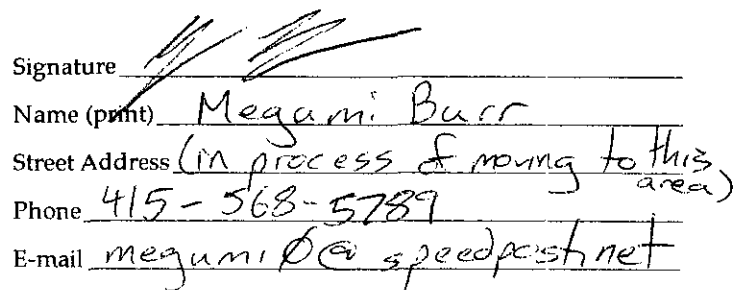 Signature
Name (print) Megumi Burr
Street Address (in process of moving to this area)
Phone 415-568-5789
E-mail megumi0@speedpost.net